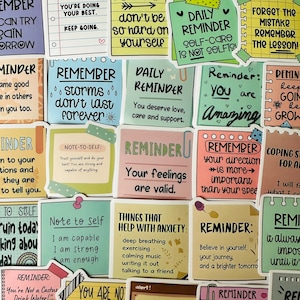 MINDER
CAN TRY
AIN
ORROW
YOU'RE DOING
YOUR BEST.
KEEP GOING.
don't be
so hard on
yourself
DAILY
REMINDER
SELF-CARE
IS NOT SELFISH
FORGET THE
MISTAKE
REMEMBER
THE LESSON
MINDER
same good
e in others
n you too.
REMEMBER
storms
don't last
forever
DAILY
REMINDER
You deserve love,
care and support.
Reminder:
YOU are
Amazing
REMIN
KEEP
GOIN
GROW
INDER
n to your
tions and
they are
to tell you.
NOTE-TO-SELF
REMINDER
Your feelings
are valid.
REMEMBER
your direction
is more
important
than your spee
COPING S
FOR AN
I will
TO SELF
ruin today
king abou
day
Note to Self
I am capable
I am strong
I am enough
THINGS THAT
HELP WITH ANXIETY
deep breathing
exercising
calming music
writing it out
talking to a friend
REMINDER:
Believe in yourself,
your journey,
and a brighter tomorro
REMI
always
impos
until
REMINDER:
You're Not a Career
YOU ARE NO
alert!
REMINDER
REMEMBER